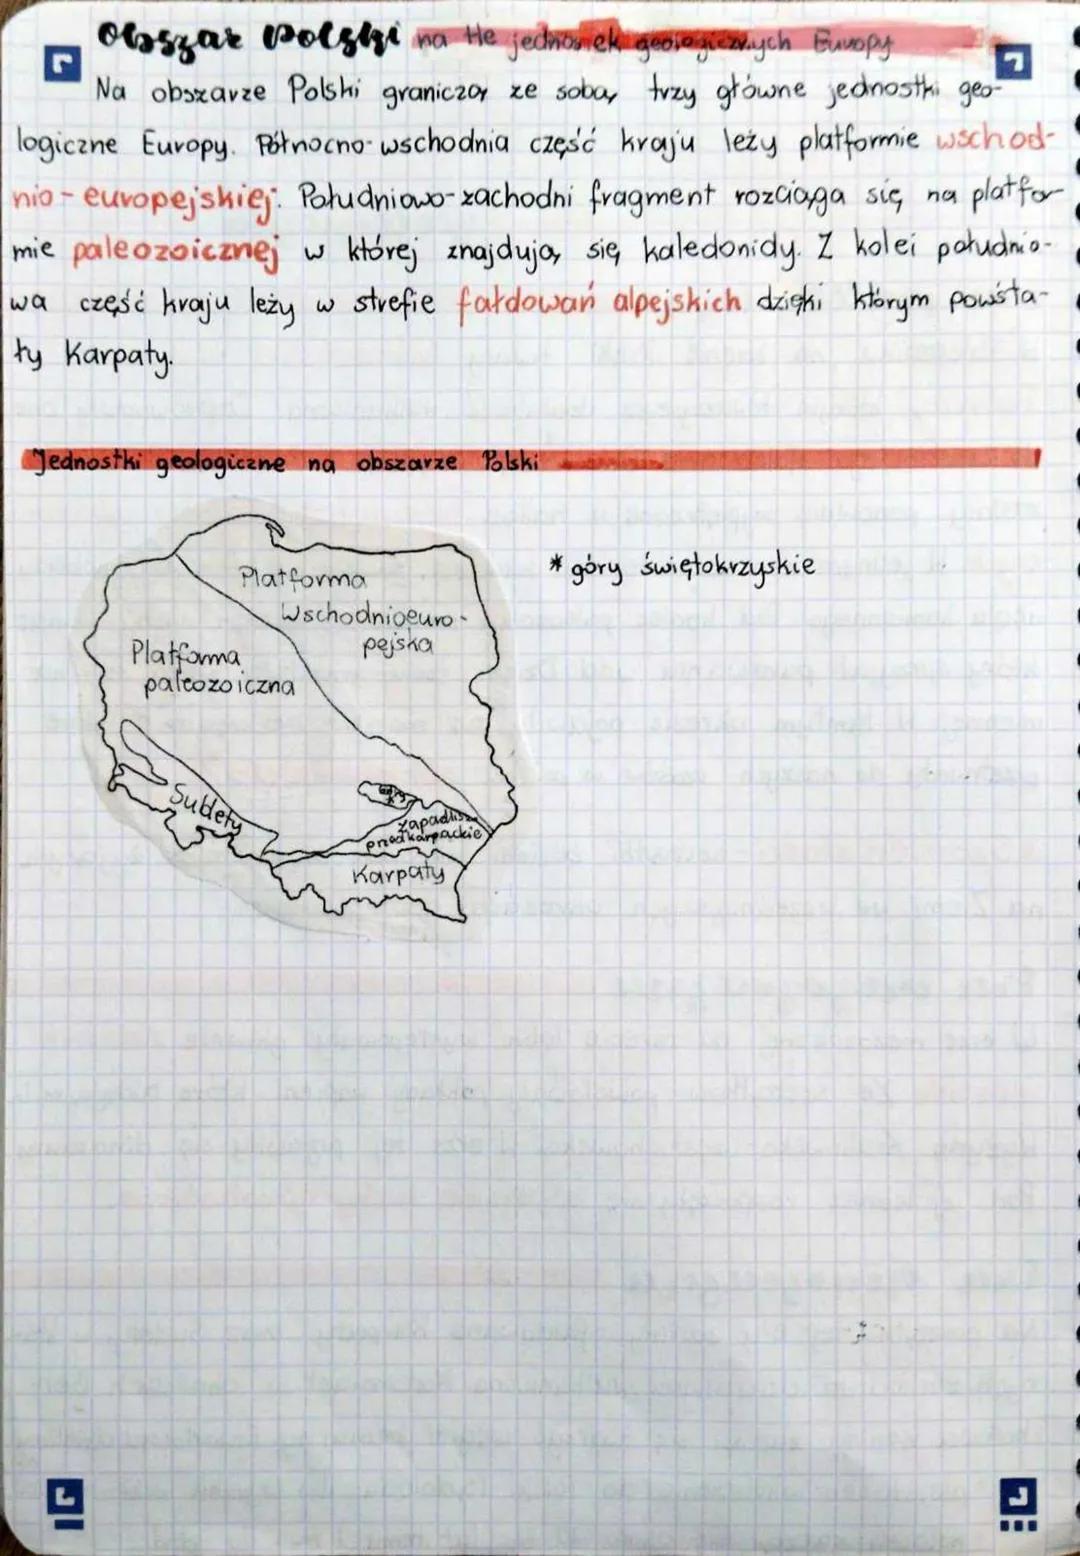 Obszar Polski na tle jednostek geologicznych Europy
Na obszarze Polski graniczą ze sobą trzy główne jednostki geo-
logiczne Europy. Północno-wschodnia część kraju leży platformie wschod-
nio-europejskiej. Południowo-zachodni fragment rozciąga się na platfor
mie paleozoicznej w której znajdują się kaledonidy. Z kolei południo-
wa część kraju leży w strefie fałdowań alpejskich dzięki którym powsta-
ły Karpaty.
Jednostki geologiczne na obszarze Polski
* góry świętokrzyskie
Platforma
Wschodnioeuro-
pejska
Platforma
paleozoiczna
Sudety
góry
*
zapadlisko
przedkarpackie
Karpaty